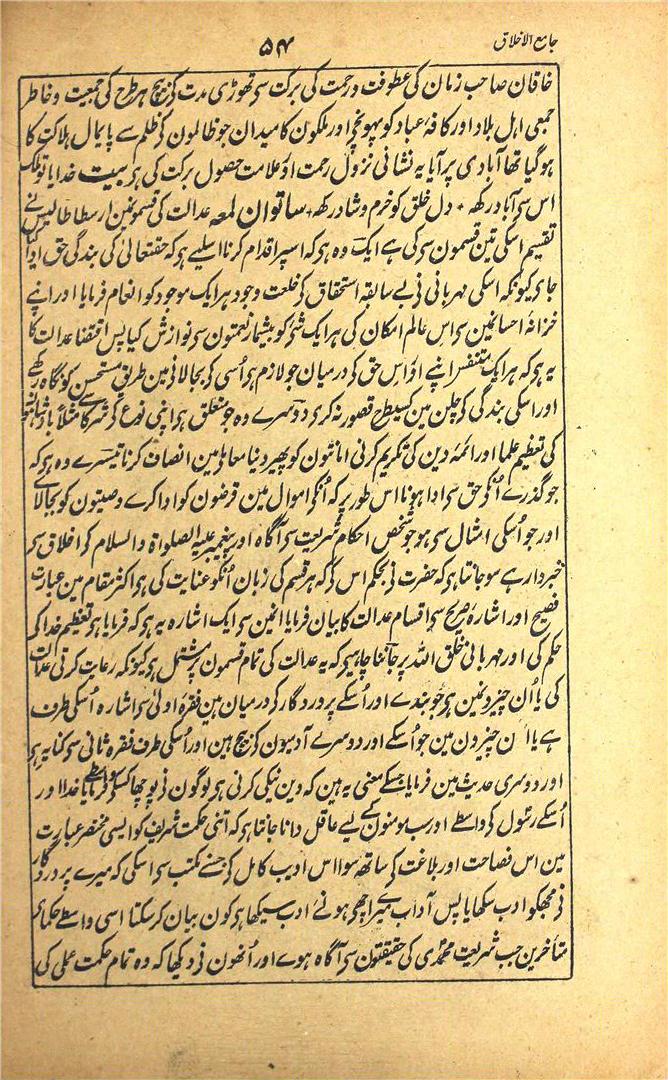 جامع الاخلاق
۵۴
خاقان صاحب زمان کی عطوفت و رحمت کی برکت سی تھوڑی مدت کی بیچ ہر طرح کی جمعیت و خاطر
جمعی اہل بلاد اور کافۂ عباد کو پہونچی اور ملکون کا میدان جو ظالمون کی ظلم سے پایمال ہلاکت کا
ہو گیا تھا آبادی پر آیا یہ نشانی نزول رحمت اور علامت حصول برکت کی ہی بیت خدایا تو ملک
اس سی آباد رکھ ٭ دل خلق کو خرم و شاد رکھ ٭ ساتوان لمعہ عدالت کی قسمونمین ارسطاطالیس نے
تقسیم اسکی تین قسمون سی کی ہے ایک وہ ہی کہ اسپر اقدام کرنا اسلیے ہی کہ حقتعالیٰ کی بندگی حق ادا کیا
جای کیونکہ اسکی مہربانی نی بے سابقہ استحقاق کی خلعت وجود ہر ایک موجود کو انعام فرمایا اور اپنے
خزانۂ احسانمین سی اس عالم امکان کی ہر ایک شی کو بیشمار نعمتون سی نوازش کیا پس اقتضا عدالت کا
یہ ہی کہ ہر ایک متنفس اپنے اور اس حق کی درمیان جو لازم ہی اُسی کی بجا لانی مین طریق مستحسن کو نگاہ رکھے
اور اسکی بندگی کی چلن مین کسیطرح قصور نہ کری دوسرے وہ جو متعلق ہی اپنی نوع کی شرکا سے مثلاً بادشاہونکی
کی تعظیم علما اور ائمۂ دین کی تکریم کرنی امانتون کو پھیر دنیا معاملی مین انصاف کرنا تیسرے وہ ہی کہ
جو گذرے اُنکی حق سی ادا ہونا اس طور پر کہ اُنکی اموال مین قرضون کو ادا کرے وصیتون کو بجا لاے
اور جو اُسکی امثال سی ہو جو شخص احکام شریعت سی آگاہ اور پیغمبر علیہ الصلواۃ والسلام کی اخلاق سی
خبردار ہے سو جانتا ہی کہ حضرت نی بحکم اس کی کہ ہر قسم کی زبان اُنکو عنایت کی ہی اکثر مقام مین عبارت
فصیح اور اشارۂ صریح سی اقسام عدالت کا بیان فرمایا انمین سی ایک اشارہ یہ ہی کہ فرمایا ہی تعظیم خدا کی
حکم کی اور مہربانی خلق اللہ پر جاننا چاہیی کہ یہ عدالت کی تمام قسمون پر مشتمل ہی کیونکہ رعایت کرنی عدالت
کی یا اُن چیزونمین ہی جو بندے اور اُسکے پروردگار کی درمیان ہین فقرۂ اولیٰ سی اشارہ اُسکی طرف
ہے یا اُن چیزون مین جو اُسکے اور دوسرے آدمیون کی بیچ ہین اور اُسکی طرف فقرہ ثانی سی کنایہ ہی
اور دوسری حدیث مین فرمایا جسکے معنی یہ ہین کہ دین نیکی کرنی ہی لوگون نی پوچھا کسکی واسطے فرمایا خدا اور
اُسکے رسول کی واسطے اور سب مومنون کے لیے عاقل دانا جانتا ہی کہ اتنی حکمت شریف کو ایسی مختصر عبارت
مین اس فصاحت اور بلاغت کی ساتھ سوا اس ادیب کامل کی جسنے مکتب سی اسکی کہ میرے پروردگار
نی مجھکو ادب سکھایا پس آداب میرا اچھی ہوئے ادب سیکھا ہی کون بیان کر سکتا اسی واسطے حکماے
متأخرین جب شریعت محمدی کی حقیقتون سی آگاہ ہوے اور اُنھون نی دیکھا کہ وہ تمام حکمت عملی کی